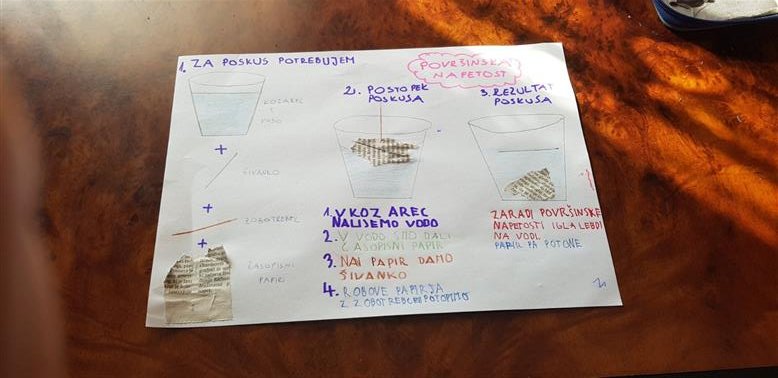 POVRŠINSKA
NAPETOST
1. ZA POSKUS POTREBUJEM
KOZAREC
Z
VODO
+
ŠIVANKO
+
ZOBOTREBEC
+
ČASOPISNI
PAPIR
2. POSTOPEK
POSKUSA
1. V KOZAREC
NALIJEMO VODO
2. V VODO SMO DALI
ČASOPISNI PAPIR
3. NAJ PAPIR DAMO
ŠIVANKO
4. ROBOVE PAPIRJA
Z ZOBOTREBCEM POTOPIMO
3. REZULTAT
POSKUSA
ZARADI POVRŠINSKE
NAPETOSTI IGLA LEBDI
NA VODI.
PAPIR PA POTONE